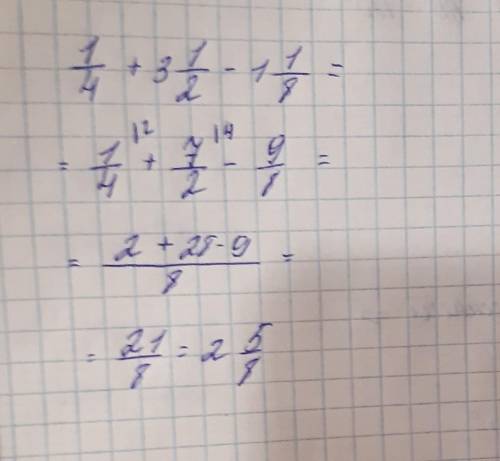 1/4 + 3 1/2 - 1 1/8 =
= 1/4 |2 + 7/2 |4 - 9/8 =
= (2 + 28 - 9)/8 =
= 21/8 = 2 5/8